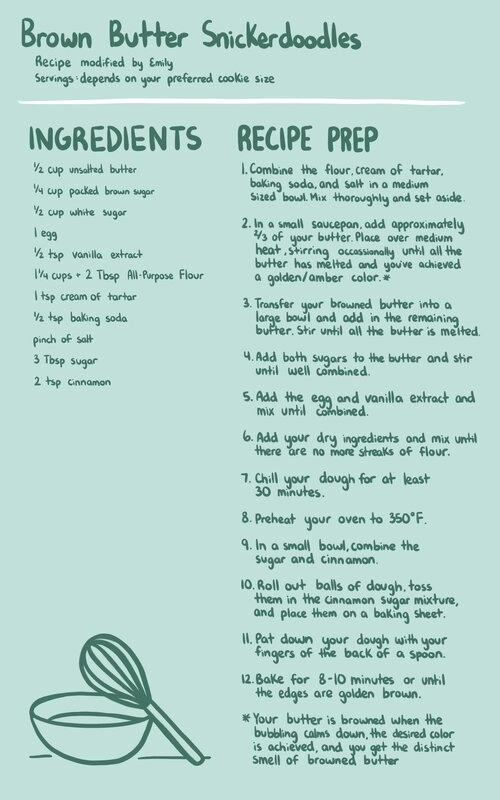 Brown Butter Snickerdoodles
Recipe modified by Emily
Servings: depends on your preferred cookie size
INGREDIENTS
½ cup unsalted butter
¼ cup packed brown sugar
½ cup white sugar
1 egg
½ tsp vanilla extract
1¼ cups + 2 Tbsp All-Purpose Flour
1 tsp cream of tartar
½ tsp baking soda
pinch of salt
3 Tbsp sugar
2 tsp cinnamon
RECIPE PREP
1. Combine the flour, cream of tartar,
baking soda, and salt in a medium
sized bowl. Mix thoroughly and set aside.
2. In a small saucepan, add approximately
⅔ of your butter. Place over medium
heat, stirring occassionally until all the
butter has melted and you've achieved
a golden/amber color.*
3. Transfer your browned butter into a
large bowl and add in the remaining
butter. Stir until all the butter is melted.
4. Add both sugars to the butter and stir
until well combined.
5. Add the egg and vanilla extract and
mix until combined.
6. Add your dry ingredients and mix until
there are no more streaks of flour.
7. Chill your dough for at least
30 minutes.
8. Preheat your oven to 350°F.
9. In a small bowl, combine the
sugar and cinnamon.
10. Roll out balls of dough, toss
them in the cinnamon sugar mixture,
and place them on a baking sheet.
11. Pat down your dough with your
fingers of the back of a spoon.
12. Bake for 8-10 minutes or until
the edges are golden brown.
* Your butter is browned when the
bubbling calms down, the desired color
is achieved, and you get the distinct
smell of browned butter